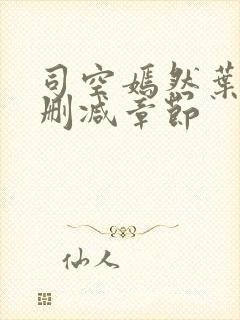 司空嫣然葉
删减章節
仙人